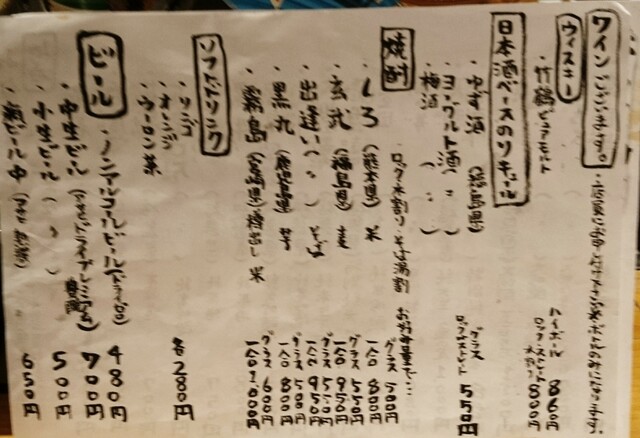 ワイン ございます。
ウィスキー
・竹鶴ピュアモルト
ハイボール 860円
ロック・ストレート 水割り 800円
日本酒ベースのリキュール
・ゆず酒 (福島県)
・ヨーグルト酒 ( 〃 )
・梅酒 ( 〃 )
グラス
ロックストレート 550円
焼酎
・ロック・水割り・そば湯割
・しろ (熊本県) 米
グラス 500円
一合 800円
・玄武 (福島県) 麦
グラス 550円
一合 950円
・出逢い ( 〃 ) そば
グラス 550円
一合 950円
・黒丸 (鹿児島県) 芋
グラス 500円
一合 800円
グラス 600円
一合 1000円
ソフトドリンク
・リンゴ
・オレンジ
・ウーロン茶
各 280円
ビール
・ノンアルコールビール(ドライゼロ) 480円
・中生ビール (アサヒドライプレミアム) 700円
・小生ビール ( 〃 ) 500円
・瓶ビール 中 650円